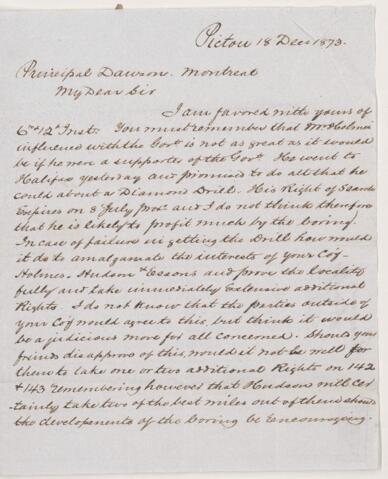 Pictou 18 Dec 1873.
Principal Dawson. Montreal
My Dear Sir
I am favored with yours of
6th & 12th Inst. You must remember that Mr Holmes
influence with the Govt is not as great as it would
be if he were a supporter of the Govt. He went to
Halifax yesterday and promised to do all that he
could about a Diamond Drill. His Right of Search
Expires on 8 July prox and I do not think therefore
that he is likely to profit much by the boring.
In case of failure in getting the Drill how would
it do to amalgamate the interests of your Coy
Holmes. Hudson & Essons and prove the locality
fully and take immediately Extensive additional
Rights. I do not know that the parties outside of
your Coy would agree to this, but think it would
be a judicious move for all concerned. Should your
friends disapprove of this, would it not be well for
them to take one or two additional Rights on 142
& 143 remembering however that Hudson will cer
-tainly take two of the best miles out of them should
the developements of the boring be Encouraging.